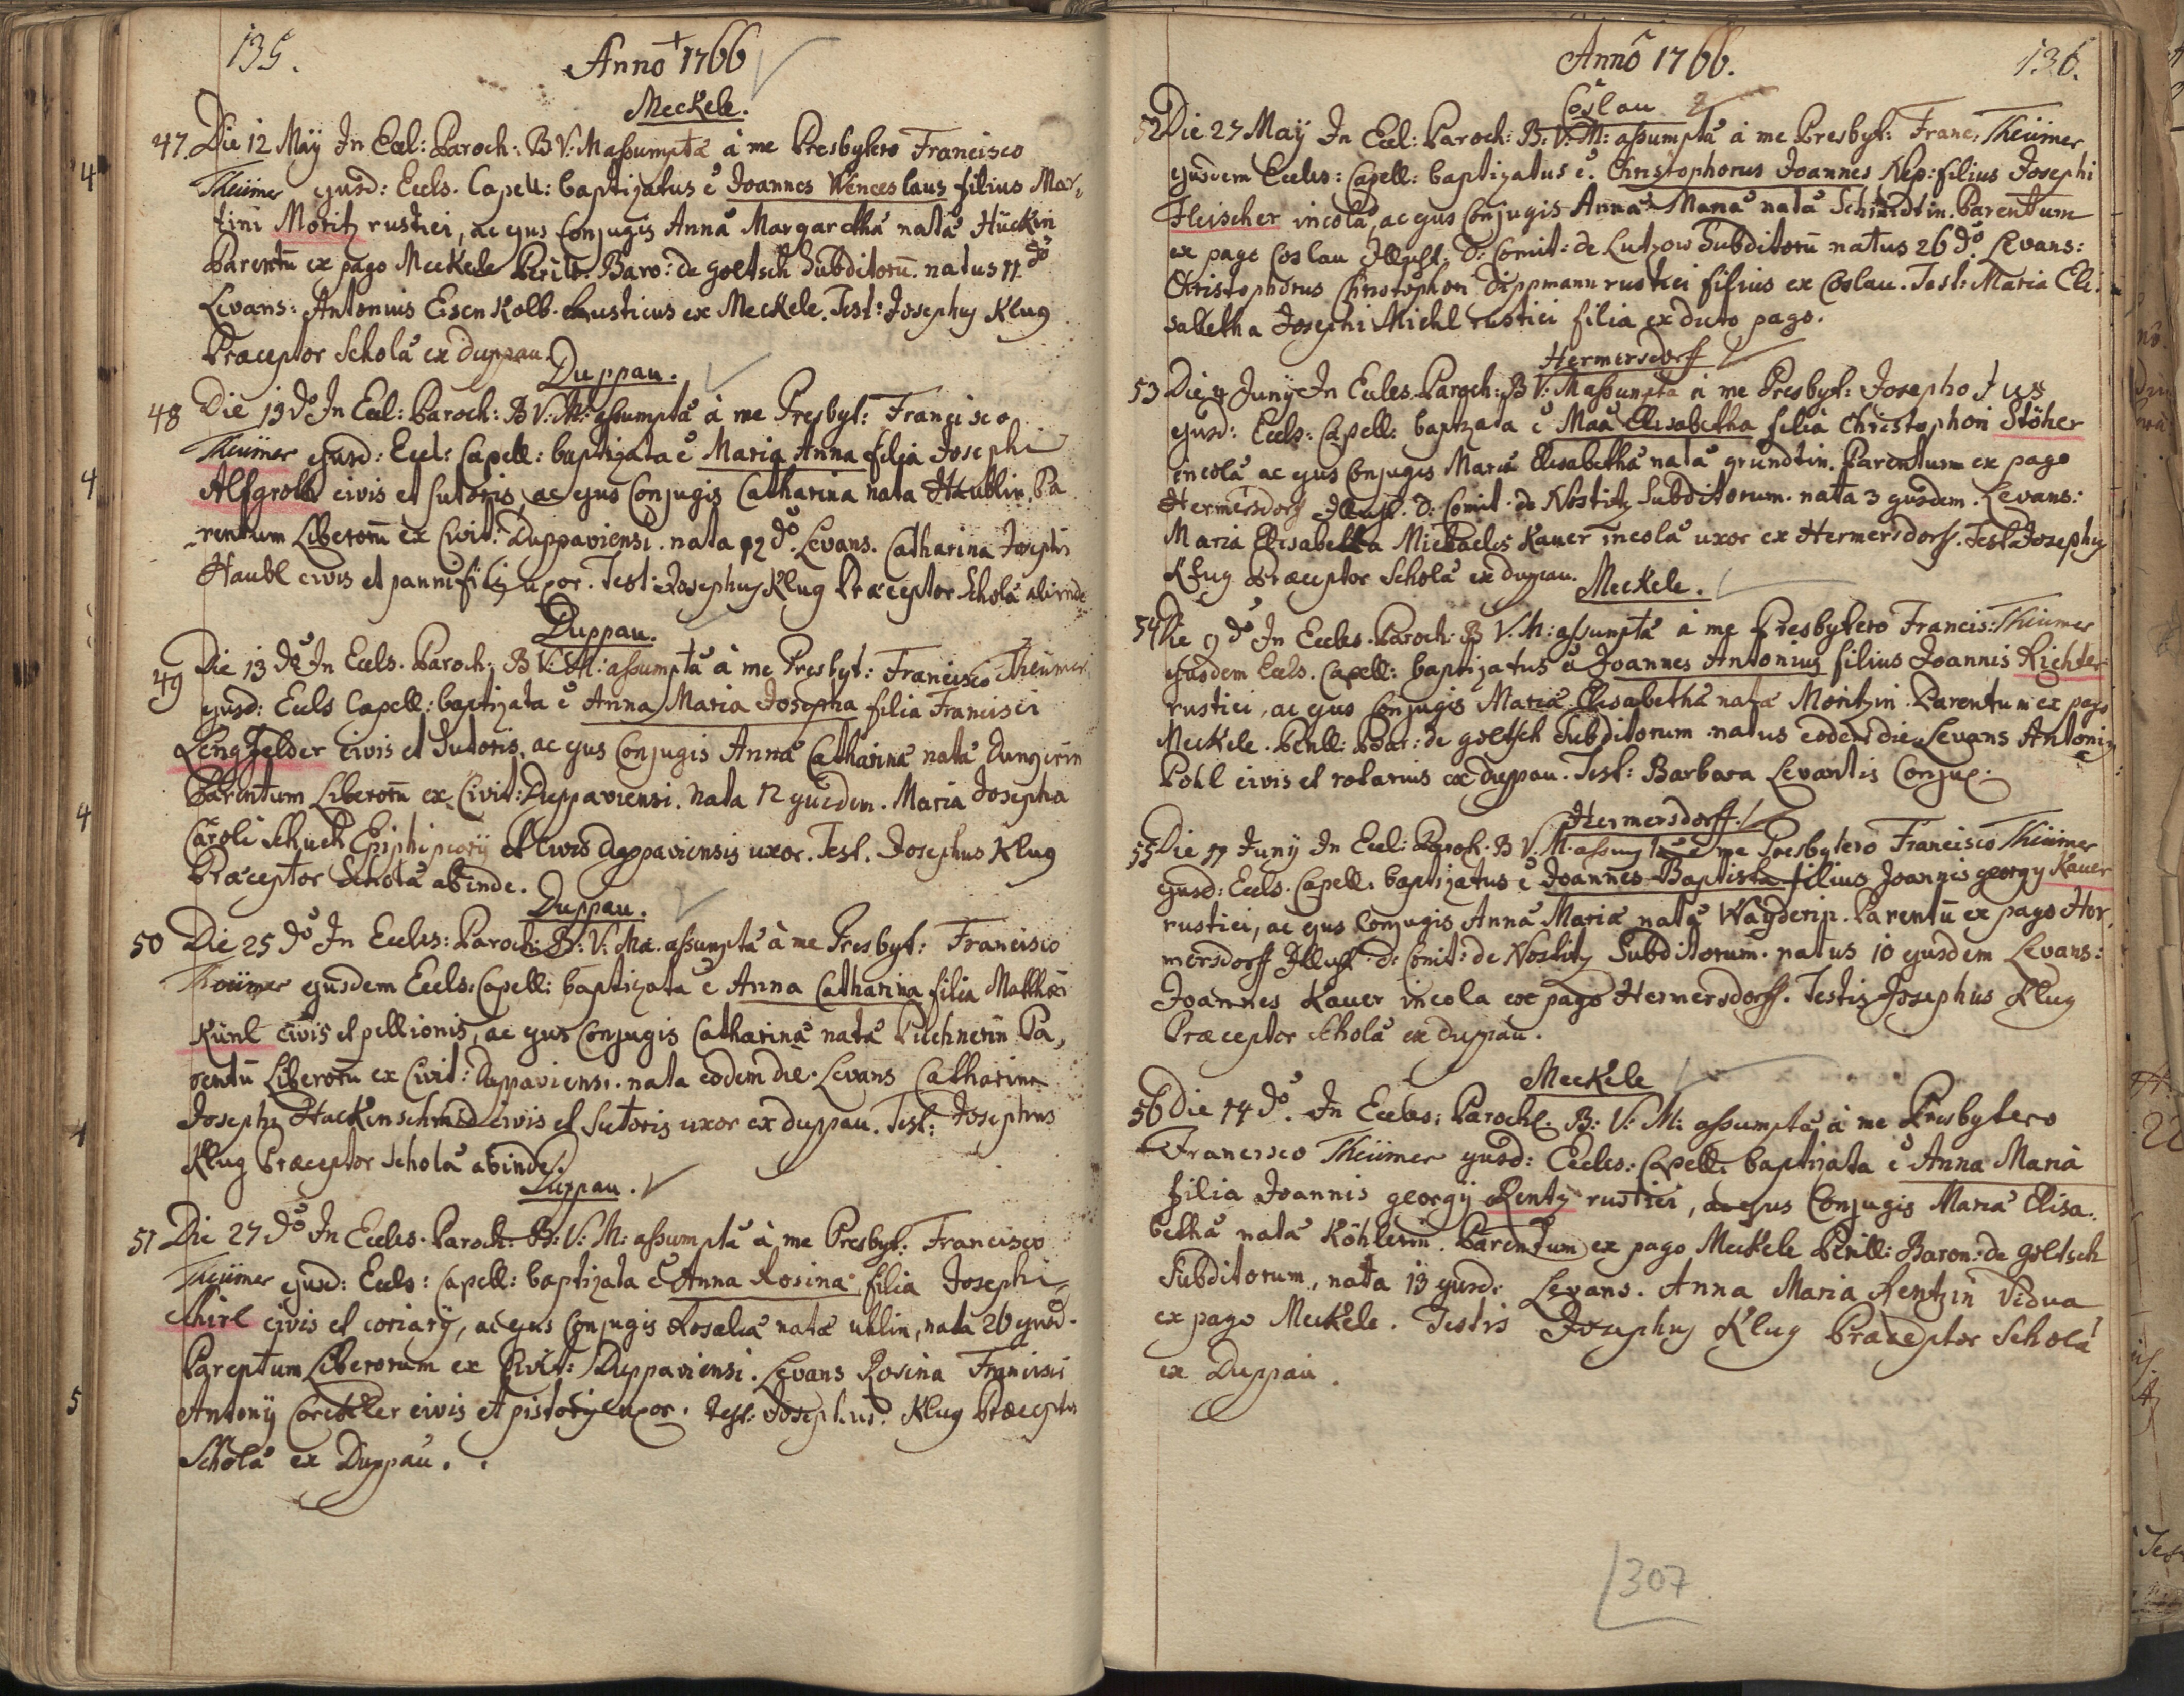 135.
Anno 1766
Meckele.
47. Die 12 Maÿ In Eccl: Paroch: B V: M assumptæ à me Presbytero Francisco
Theümer ejusd: Eccls. Capell: baptizatus é Joannes Wenceslaus filius Mar,
tini Moritz rustici, ac ejus Conjugis Annæ Margarethæ natæ Hückin
Parentū ex pago Meckele Baro: de Goltsch Subditorū. natus 11 dº
Levans: Antonius Eisenkolb. Rusticus ex Meckele. Test: Josephus Klug
Præceptor Scholæ ex Duppau.
Duppau.
48 Die 13 dº In Eccl: Paroch: B V: M: assumptæ à me Presbyt: Francisco
Theümer ejusd: Eccl: Capell: baptizata é Maria Anna filia Josephi
civis et sutoris, ac ejus Conjugis Catharina nata Haublin. Pa
rentum Liberorū ex Civit: Duppaviensi. nata 12 dº. Levans. Catharina Josephi
Haubl civis et pannificis uxor. Test: Josephus Klug Præceptor Scholæ abinde
Duppau.
49 Die 13 dº In Eccls. Paroch: B V: M: assumptæ à me Presbyt: Francisco Theümer
ejusd: Eccls Capell: baptizata é Anna Maria Josepha filia Francisci
Lengfelder civis et Sutoris, ac ejus Conjugis Annæ Catharinæ natæ Jungerin
Parentum Liberorū ex Civit: Duppaviensi. Nata 12 ejusdem. Maria Josepha
Caroli Schuch Ephipiarÿ et civis Duppaviensis uxor. Test. Josephus Klug
Præceptor Scholæ abinde.
Duppau.
50 Die 25 dº In Eccles: Paroch: B: V: Ma. assumptæ à me Presbyt: Francisco
Theümer ejusdem Eccls: Capell: baptizata é Anna Catharina filia Matthæi
Künl civis et pellionis, ac ejus Conjugis Catharinæ natæ Pilchnerin Pa,
rentū Liberorū ex Civit: Duppaviensi. nata eodem die. Levans Catharina
Josephi Hackenschmid civis et Sutoris uxor ex Duppau. Test: Josephus
Klug Præceptor Scholæ abinde.
Duppau.
51 Die 27 dº In Eccles. Paroch: B: V: M: assumptæ à me Presbyt: Francisco
Theümer ejusd: Eccls: Capell: baptizata é Anna Rosina filia Josephi
civis et coriarÿ, ac ejus Conjugis Rosaliæ natæ Ublin, nata 26 ejusd.
Parentum Liberorum ex Civit: Duppaviensi. Levans Rosina Francisci
Antonÿ civis et pistoris uxor. Test: Josephus Klug Præceptor
Scholæ ex Duppau.
Anno 1766.
136.
Coslau
52 Die 27 Maÿ In Eccl: Paroch: B: V: M: assumptæ à me Presbyt: Franc: Theümer
ejusdem Eccles: Capell: baptizatus é. Christophorus Joannes Nep: filius Josephi
Fleischer incolæ, ac ejus Conjugis Annæ Mariæ natæ Schmidtin. Parentum
ex pago Coslau Illust: D: Comit: de Lutzow Subditorū natus 26 dº. Levans:
Christophorus Christophori Dippmann rustici filius ex Coslau. Test: Maria Eli,
sabetha Josephi Michl rustici filia ex dicto pago.
Hermersdorf
53 Die 4 Junÿ In Eccles. Paroch: B V: M assumptæ à me Presbyt: Josepho
ejusd: Eccls: Capell: baptizata é Maria Elisabetha filia Christophori Stöher
incolæ ac ejus Conjugis Mariæ Elisabethæ natæ Gründtin. Parentum ex pago
Hermersdorf Illust. D: Comit: de Nostitz Subditorum. nata 3 ejusdem. Levans:
Maria Elisabetha Michaelis Kauer incolæ uxor ex Hermersdorf. Test: Josephus
Klug Præceptor Scholæ ex Duppau.
Meckele.
54 Die 9 dº In Eccles. Paroch: B V: M: assumptæ à me Presbytero Francis: Theümer
ejusdem Eccls. Capell: baptizatus é Joannes Antonius filius Joannis Richter
rustici, ac ejus Conjugis Mariæ Elisabethæ natæ Moritzin. Parentum ex pago
Meckele. Perill: Bar: de Goltsch Subditorum natus eodem die. Levans Antonius
Pohl civis et rotarius ex Duppau. Test: Barbara Levantis Conjux.
Hermersdorff.
55 Die 11 Junÿ In Eccl: Paroch. B V: M: assumptæ à me Presbytero Francisco Theümer
ejusd: Eccls. Capell. baptizatus é Joannes Baptista filius Joannis Georgÿ Kauer
rustici, ac ejus Conjugis Annæ Mariæ natæ Wayderin. Parentū ex pago Her,
mersdorff Illust. D: Comit: de Nostitz Subditorum. natus 10 ejusdem Levans:
Joannes Kauer incola ex pago Hermersdorff. Testis Josephus Klug
Præceptor Scholæ ex Duppau.
Meckele
56 Die 14 dº. In Eccles: Paroch. B: V: M: assumptæ à me Presbytero
Francisco Theümer ejusd: Eccles: Capell: baptizata é Anna Maria
filia Joannis Georgÿ Rentz rustici, ac ejus Conjugis Mariæ Elisa,
bethæ natæ Köhlerin. Parentum ex pago Meckele Perill: Baron: de Goltsch
Subditorum, nata 13 ejusd: Levans. Anna Maria Rentzin Vidua
ex pago Meckele. Testis Josephus Klug Præceptor Scholæ
ex Duppau.
307